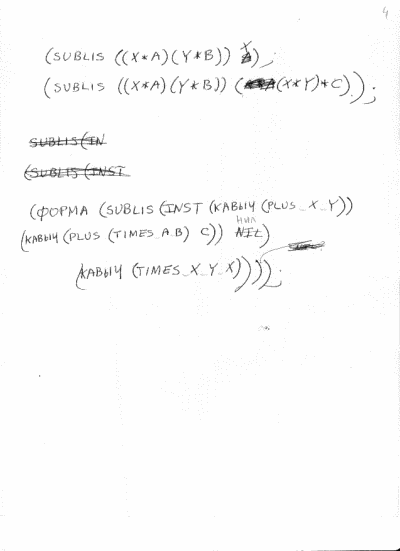 4
(SUBLIS ((X*A)(Y*B)) X),
(SUBLIS ((X*A)(Y*B)) ((X*Y)*C));
SUBLIS(IN
(SUBLIS (INST
(ФОРМА (SUBLIS (INST (КАВЫЧ (PLUS_X_Y))
НИЛ
(КАВЫЧ (PLUS (TIMES_A_B) C)) NIL)
(КАВЫЧ (TIMES_X_Y_X))));